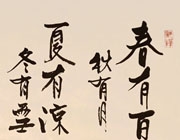 春有百
秋有月
夏有涼
冬有雪